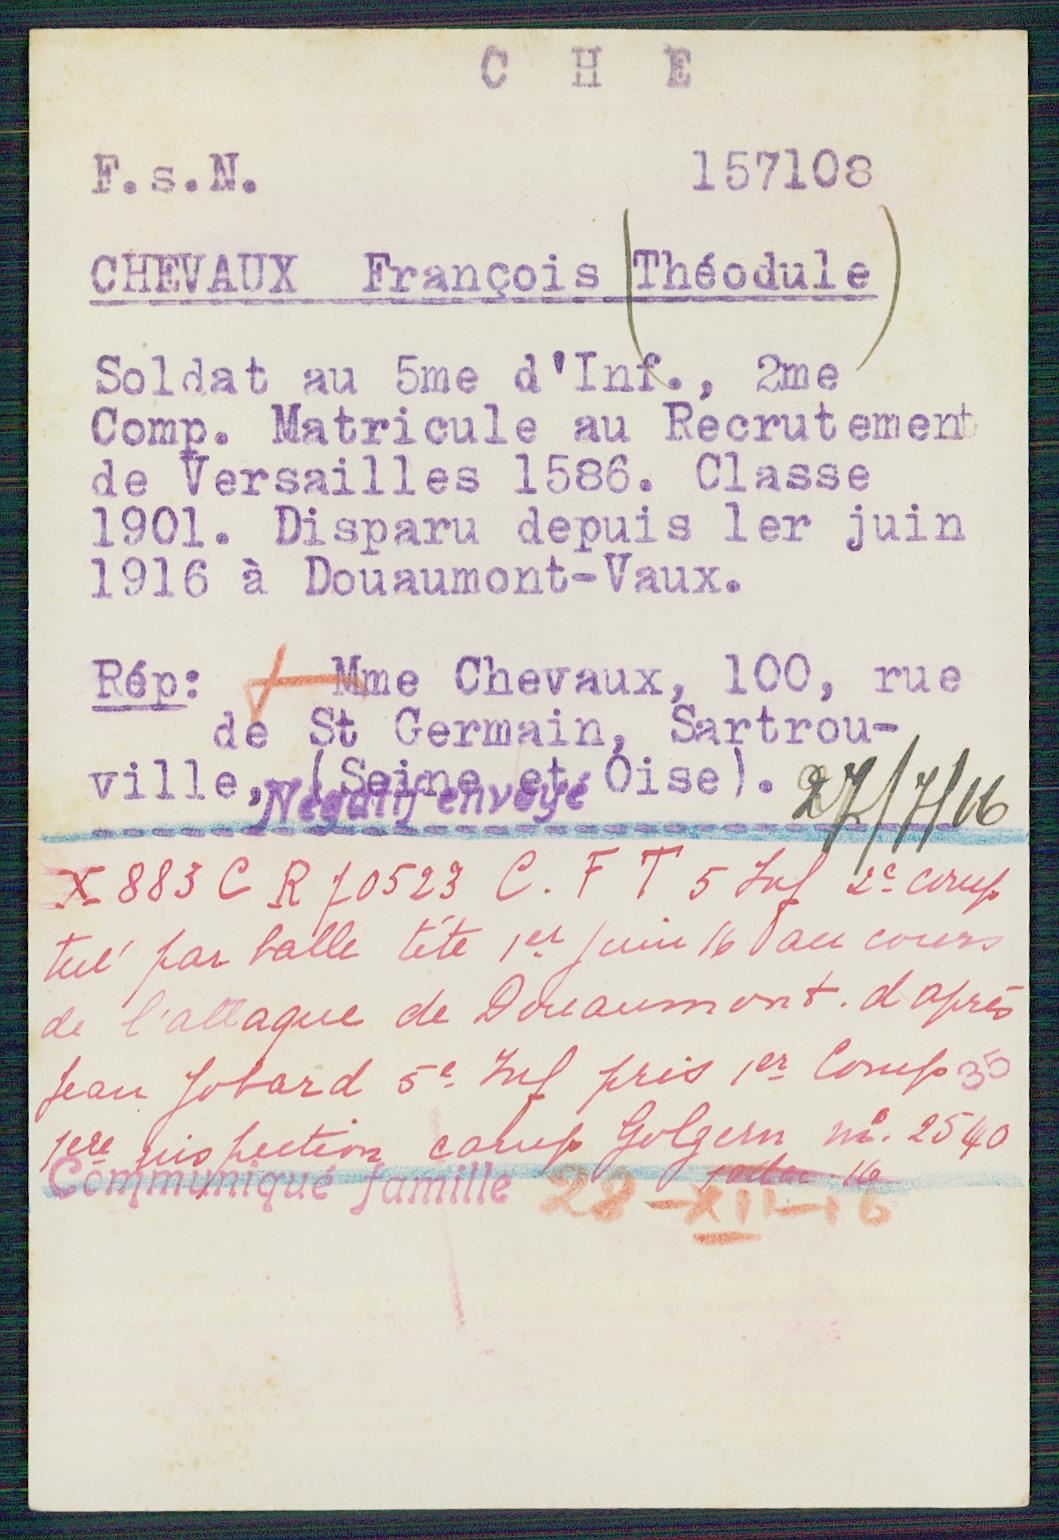 C H E
F.s.N. 157108
CHEVAUX François (Théodule)
Soldat au 5me d'Inf., 2me
Comp. Matricule au Recrutement
de Versailles 1586. Classe
1901. Disparu depuis 1er juin
1916 à Douaumont-Vaux.
Rép: Mme Chevaux, 100, rue
de St Germain, Sartrou-
ville, (Seine et Oise).
Négatif envoyé 27/7/16
X 883 C R 70523 C. F T 5 Inf 2e comp
tué par balle tête 1er juin 16 au cours
de l'attaque de Douaumont. d après
Jean Jobard 5e Inf pris 1er Comp 35
1ere inspection camp Golgern no. 2540
16
Communiqué famille 28-XII-16